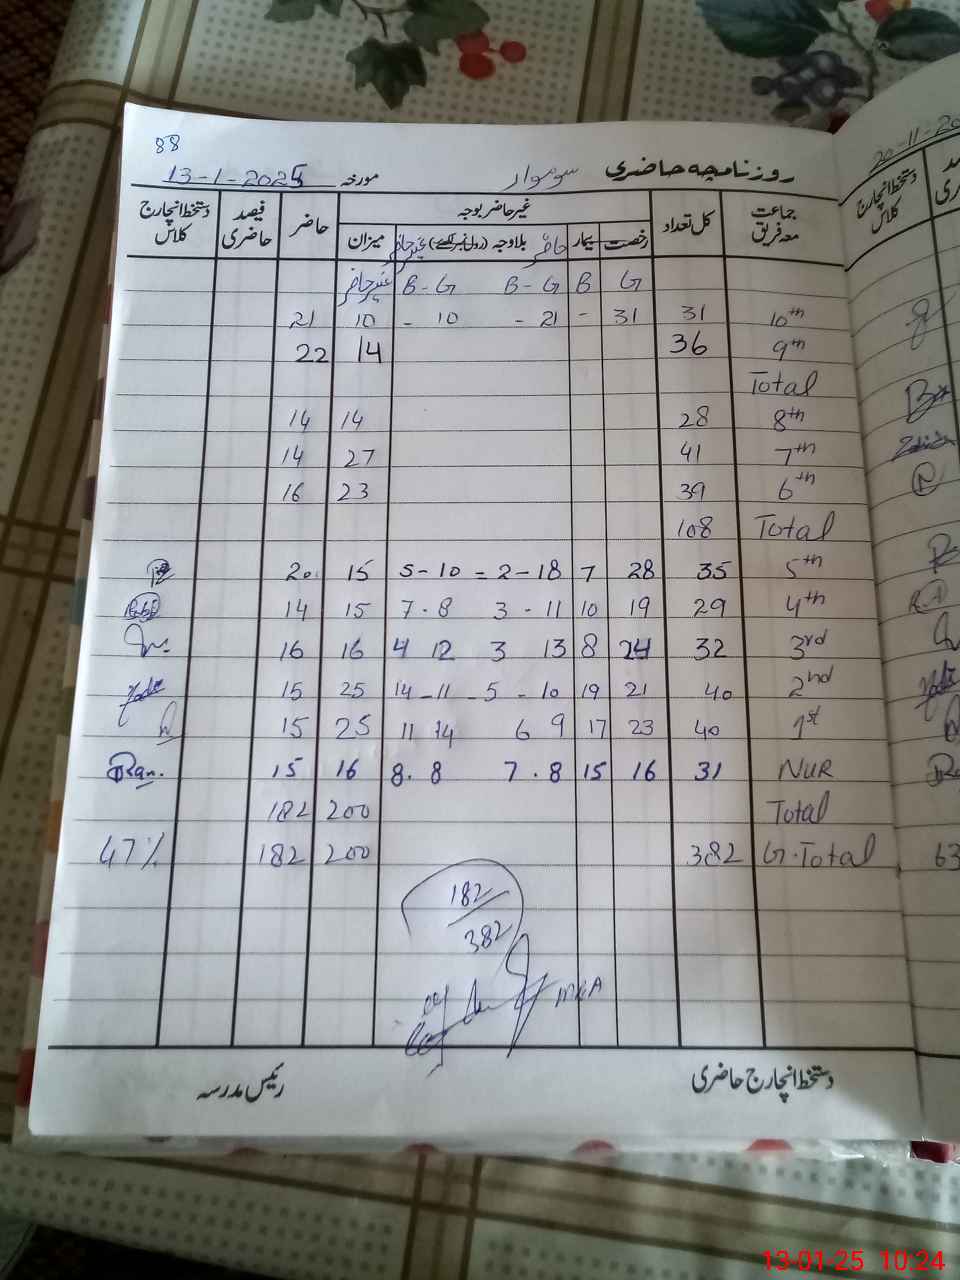 88
روزنامچہ حاضری سوموار مورخہ 13-1-2025
20-11-20
جماعت معہ فریق کل تعداد غیر حاضر بوجہ حاضر فیصد حاضری دستخط انچارج کلاس
رخصت بیمار حاضر بلاوجہ (رول نمبر لکھیے) غیر حاضر میزان
G B B - G B - G غیر حاضر
10th 31 31 - - 21 - 10 10 21
9th 36 14 22
Total
8th 28 14 14
7th 41 27 14
6th 39 23 16
Total 108
5th 35 28 7 2-18 = 5-10 15 20
4th 29 19 10 3 - 11 7 - 8 15 14
3rd 32 24 8 3 13 4 12 16 16
2nd 40 21 19 5 - 10 - 14 - 11 25 15
1st 40 23 17 6 9 11 14 25 15
NUR 31 16 15 7 . 8 8 . 8 16 15 Ran.
Total 200 182
G.Total 382 200 182 47%
63
182
382
دستخط انچارج حاضری رئیس مدرسہ
دستخط انچارج کلاس
13-01-25 10:24